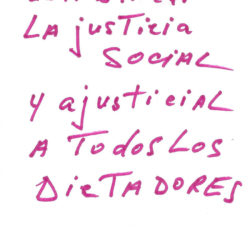 La justicia
SOCIAL
y ajusticiAL
A TODOS LOS
DicTADORES